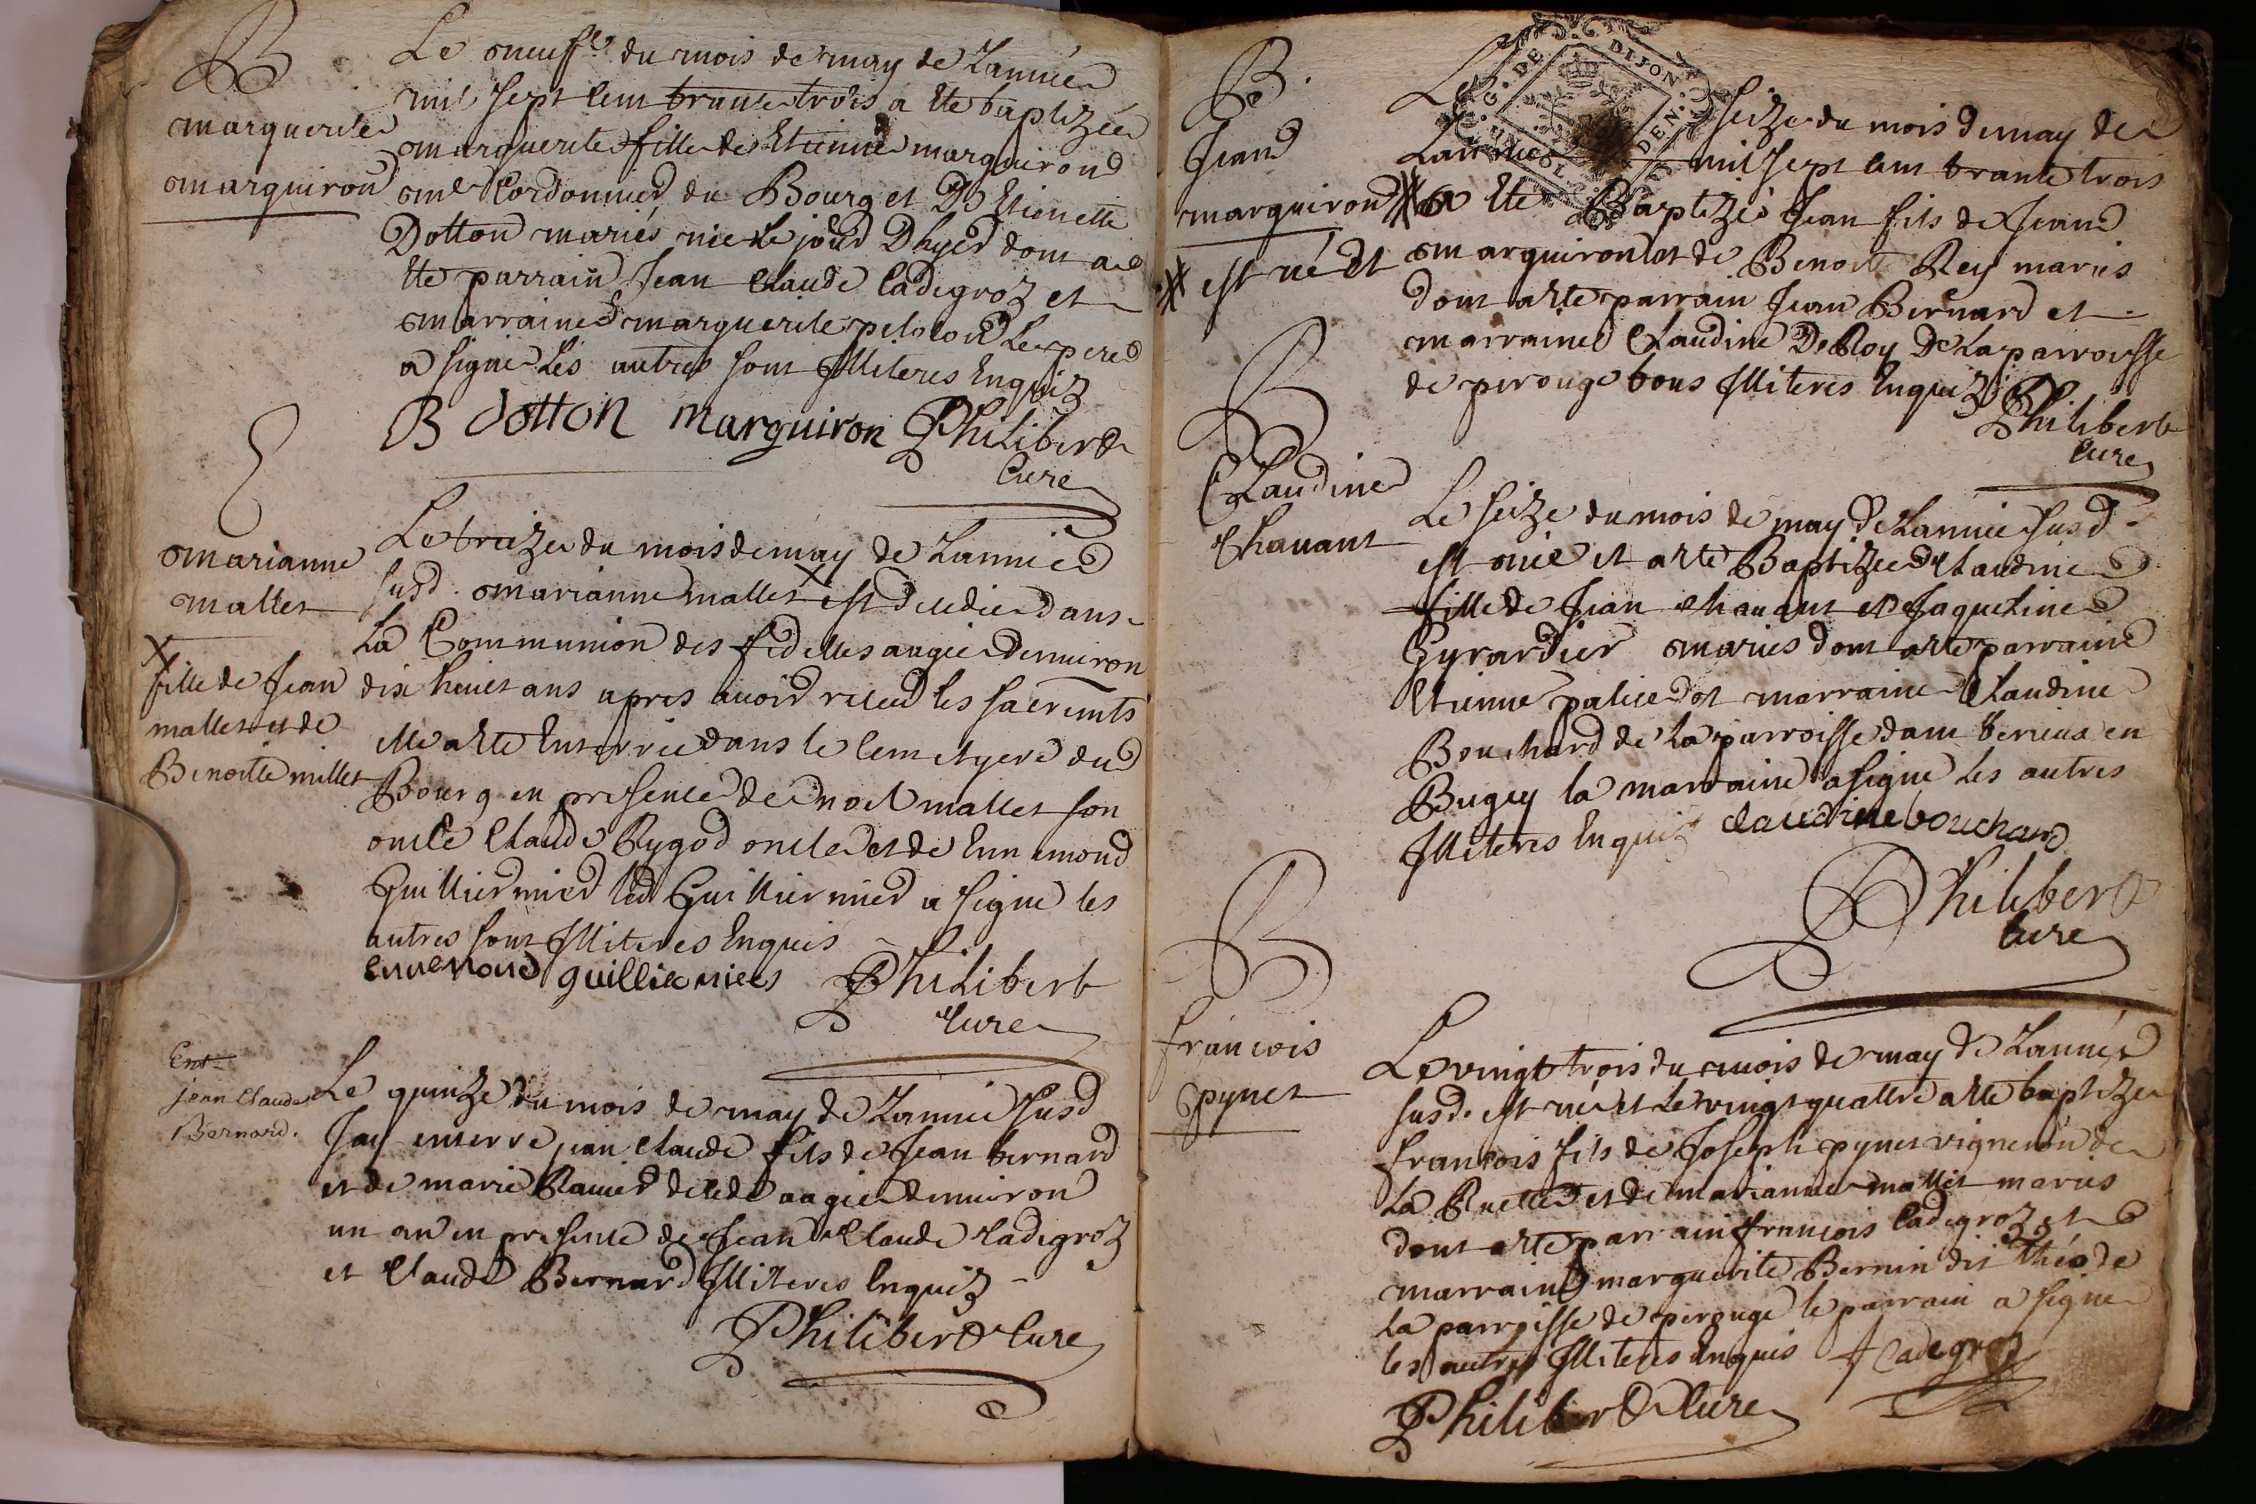 B
marguerite
marguiron
Le neufe du mois de may de Lannée
mil sept cent trante trois a ete baptizée
marguerite fille de Etienne marguirond
me Cordonnier du Bourg et D Etienette
Dotton mariés née le jour Dhyer dont a
ete parrain Jean Claude Cadegroz et
marraine marguerite peloson Le pere
a signe Les autres sont Illiteres Enquiz
B dotton marguiron Philibert
Cure
marianne
mallet
X
fille de Jean
mallet et de
Benoitte millet
Le treize du mois de may de Lannée
susd. marianne mallet X est decedée dans
La Communion des fidelles augée denviron
dix huict ans apres avoir receu les sacremts
elle a ete Enterrée dans le Cemetyere du
Bourg en presence de noel mallet son
oncle Claude Rygod oncle et de Ennemond
Guilliermier led Guilliermier a signe les
autres sont Illiteres Enquis
ennemond guilliermier Philibert
Cure
Ent.
jean Claude
Bernard.
Le quinze du mois de may de Lannée susd
Jay enterre jean Claude fils de Jean bernard
et de marie Ravier decedé augée denviron
un an en presence de Jean Claude Cadegroz
et Claude Bernard Illiteres Enquiz
Philibert Cure
B.
Jean
marguiron
※ est né et
G. DE DIJON
Le seize du mois de may de
Lannée mil sept cent trante trois
※ a ete Baptizé Jean fils de Jean
marguiron et de Benoite Rey mariés
dont a ete parrain Jean Bernard et
marraine Claudine DeRoy De La parroisse
de perouge tous Illiteres Enquiz
Philibert
Cure
B
Claudine
Chavant
Le seize du mois de may de Lannée susd
est née et a ete Baptizée Claudine
fille de Jean Chavant et Jaqueline
Gyrardier mariés dont a ete parrain
Etienne et marraine Claudine
Bouchard de La parroisse dam berieux en
Bugey la marraine a signe les autres
Illiteres Enquis claudine bouchard
Philibert
Cure
B
francois
pynet
Le vingt trois du mois de may de Lannée
susd. est né et Le vingt quattre a ete baptize
francois fils de Joseph pynet vigneron de
La Ruette et de marianne mallet mariés
dont a ete parrain francois Cadegroz et
marraine marguerite Bernin dit théo de
La parroisse de perouge le parrain a signe
les autres Illiteres Enquis f cadegroz
Philibert Cure